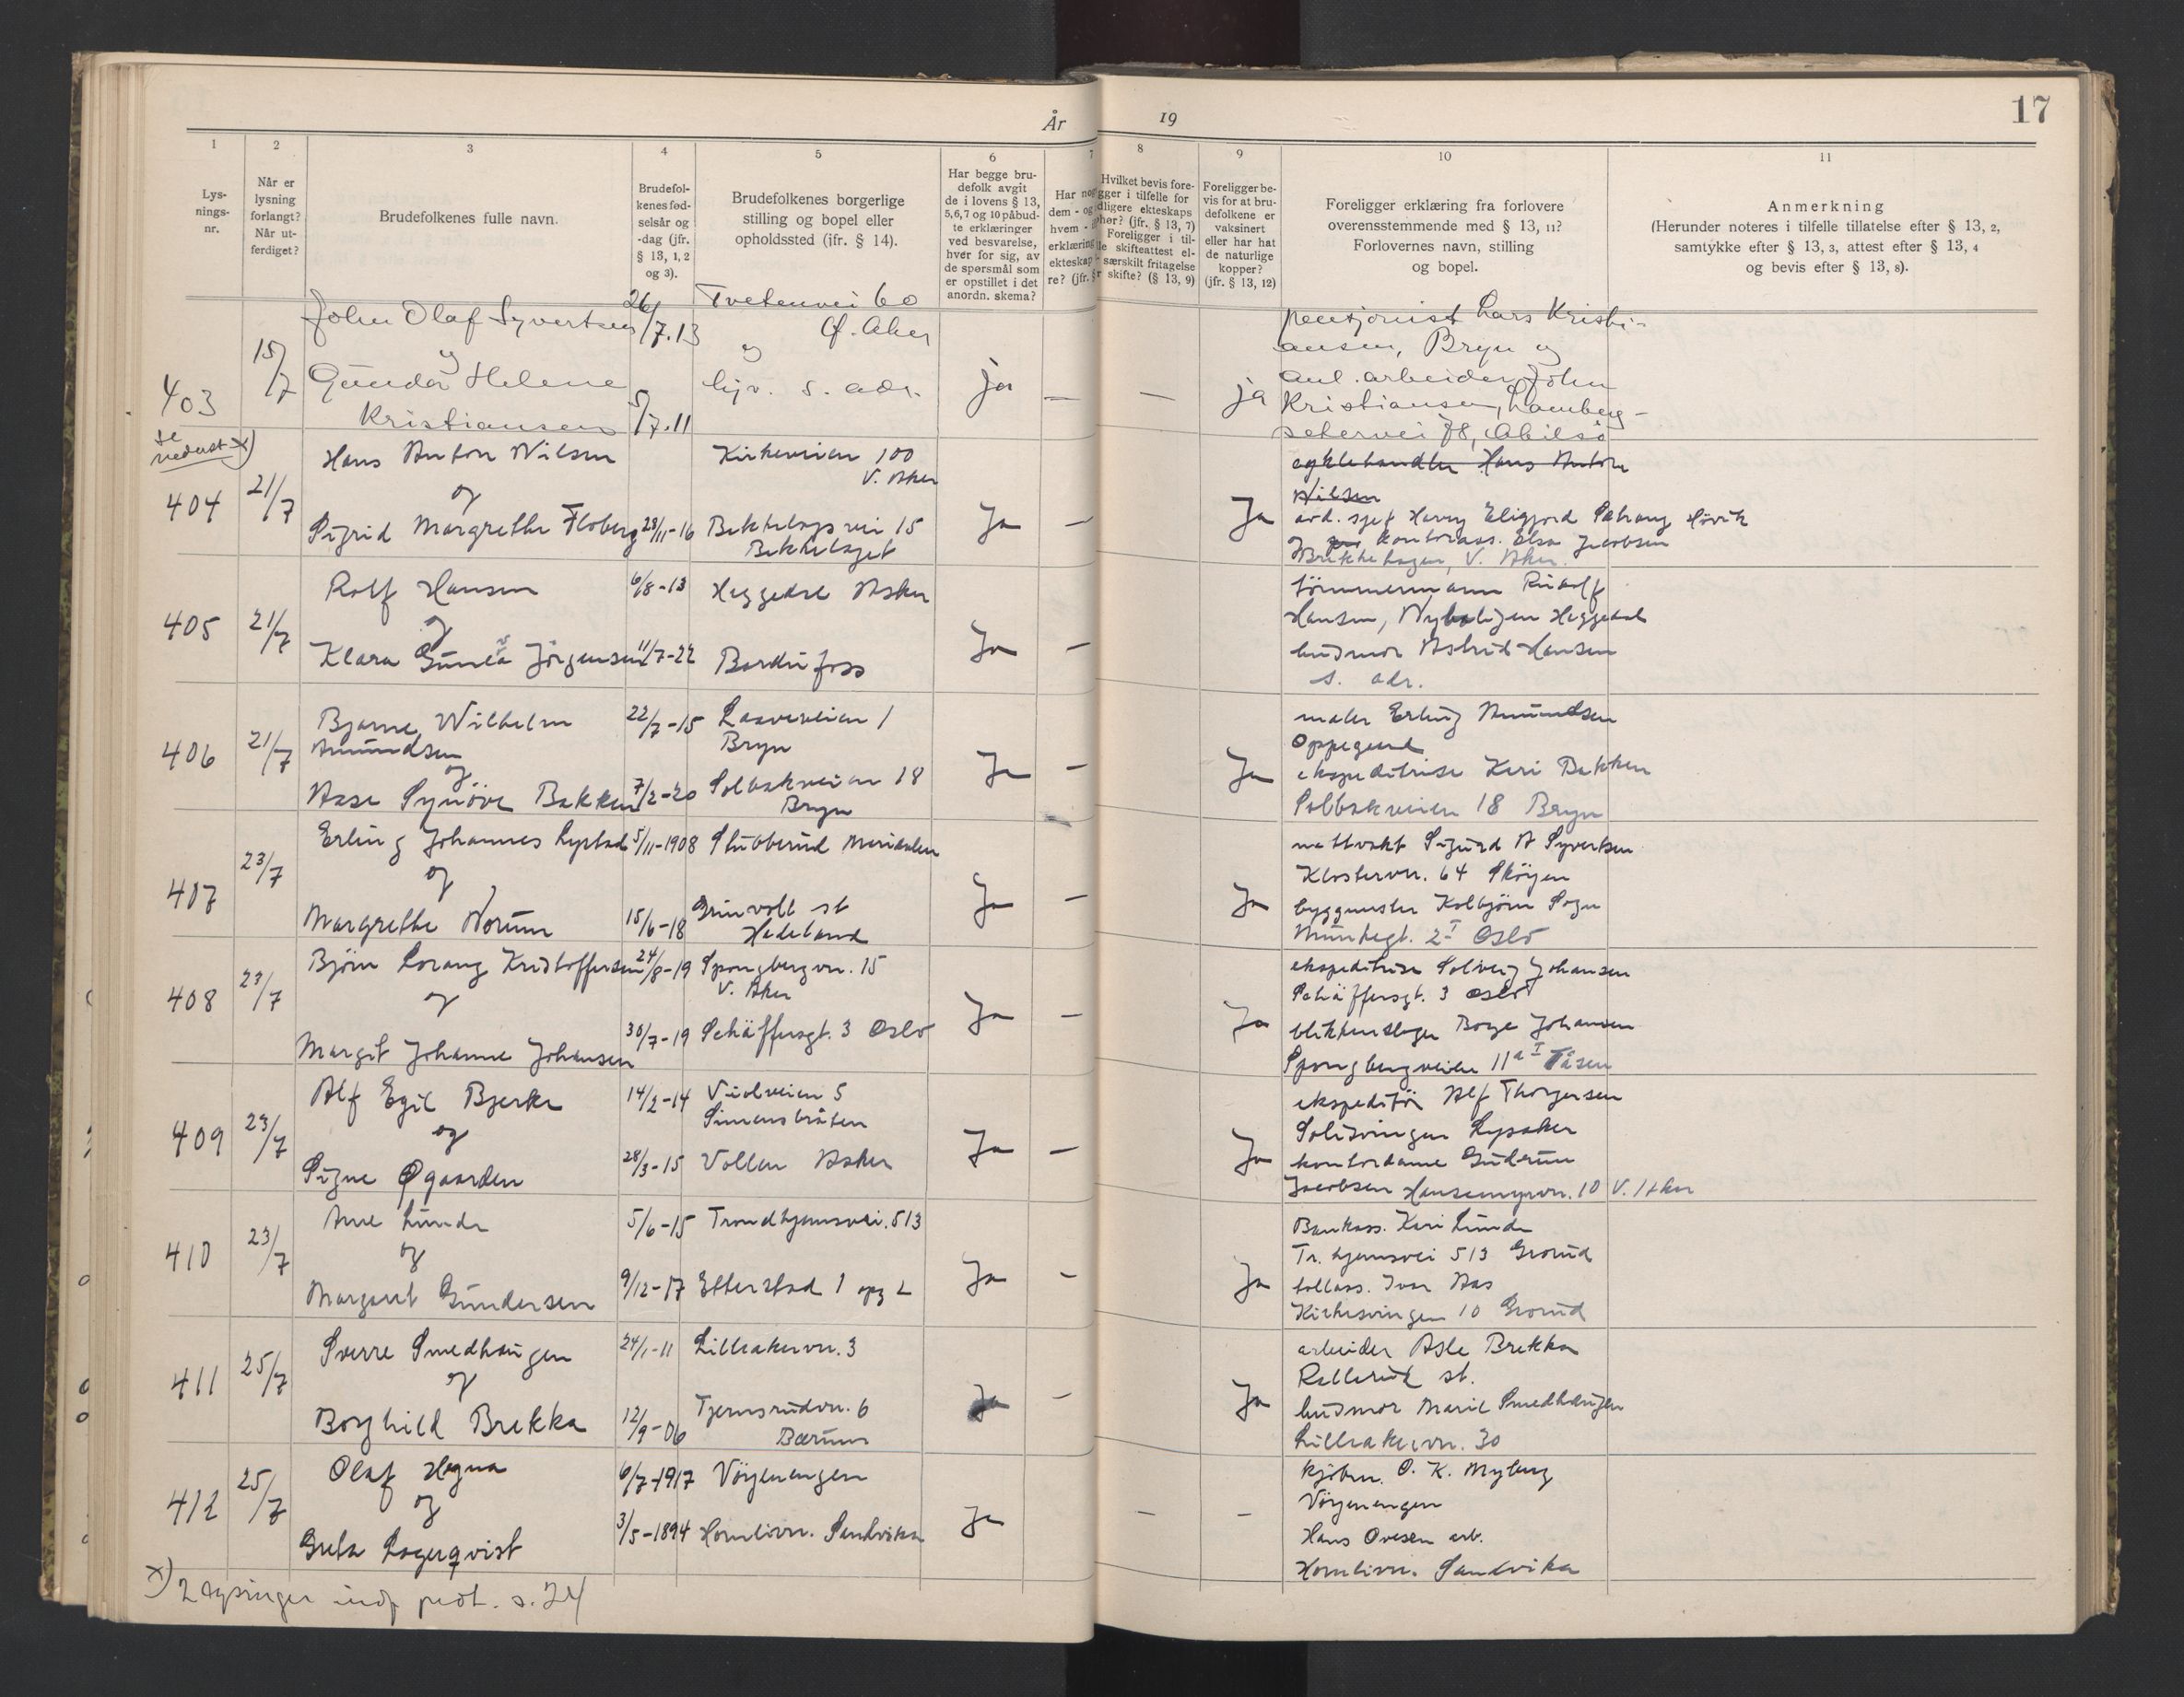 År 19
17
1
Lys-
nings-
nr.
2
Når er
lysning
forlangt?
Når ut-
ferdiget?
3
Brudefolkenes fulle navn.
4
Brudefol-
kenes fød-
selsår og
-dag (jfr.
§ 13, 1, 2
og 3).
5
Brudefolkenes borgerlige
stilling og bopel eller
opholdssted (ifr. § 14).
6
Har begge bru-
defolk avgit
de i lovens § 13,
5,6,7 og 10 påbud-
te erklæringer
ved besvarelse,
hver for sig, av
de spørsmål som
er opstillet i det
anordn. skema?
7
Har nog
dem - og
hvem -
erklæring
ekteskap
re? (jfr. §
8
Hvilket bevis fore-
gger i tilfelle for
dligere ekteskaps
hør? (jfr. § 13, 7)
Foreligger i til-
le skifteattest el-
særskilt fritagelse
r skifte? (§ 13, 9)
9
Foreligger be-
vis for at bru-
defolkene er
vaksinert
eller har hat
de naturlige
kopper?
(jfr. § 13, 12)
10
Foreligger erklæring fra forlovere
overensstemmende med § 13, 11?
Forlovernes navn, stilling
og bopel.
11
Anmerkning
(Herunder noteres i tilfelle tillatelse efter § 13, 2,
samtykke efter § 13, 3, attest efter § 13, 4
og bevis efter § 13, 8).
403
15/7
John Olaf Syvertsen
og
Gunda Helene
Kristiansen
26/7.13
5/7.11
Tvetenvei 60
Ø. Aker
og
hjv. s. adr.
ja
—
—
ja
pensjonist Lars Kristi-
ansen, Bryn og
anl. arbeider John
Kristiansen, Lamberg-
setervei 78, Abilsø
se
nederst x)
404
21/7
Hans Anton Nilsen
og
Sigrid Margrethe Floberg
28/11-16
Kirkeveien 100
V. Aker
Bekkelagsvei 15
Bekkelaget
Ja
—
Ja
cyklehandler Hans Anton
Nilsen
avd. sjef Harry Høvik
og kontorass. Elsa Jacobsen
V. Aker.
405
21/7
Rolf Hansen
og
Klara Gunla Jørgensen
6/8-13
11/7-22
Heggedal Asker
Bardufoss
Ja
—
tømmermann Rudolf
Hansen, Heggedal
husmor Astrid Hansen
s. adr.
406
21/7
Bjarne Wilhelm
Amundsen
og
Aase Synöve Bakken
22/7-15
7/2-20
1
Bryn
Solbakveien 18
Bryn
Ja
—
Ja
maler Erling Amundsen
Oppegård
ekspeditrise Kari Bakken
Solbakveien 18 Bryn
407
23/7
Erling Johannes Lystad
og
Margrethe Norum
5/11-1908
15/6-18
Stubberud Maridalen
Grinvoll st
Hadeland
Ja
—
Ja
nattvakt Sigurd A Syvertsen
Klostervn. 64 Skøyen
byggmester Kolbjørn Sogn
Munkegt. 2 I Oslo
408
23/7
Bjørn Lorang Kristoffersen
og
Margit Johanne Johansen
24/8-19
30/7-19
Spongbergvn. 15
V. Aker
Schäffersgt. 3 Oslo
Ja
—
Ja
ekspeditrise Solveig Johansen
Schäffersgt. 3 Oslo
blikkenslager Borge Johansen
Spongbergveien 11a I Tåsen
409
23/7
Alf Egil Bjerke
og
Signe Øgaarden
14/2-14
28/3-15
Violveien 5
Simensbråten
Vollen Asker
Ja
—
Ja
ekspeditør Alf Thorgersen
Solisvingen Lysaker
kontordame Gudrun
Jacobsen 10 V. Aker
410
23/7
Arne Lunde
og
Margaret Gundersen
5/6-15
9/12-17
Trondhjemsvei. 513
Etterstad 1 opg 2
Ja
—
Ja
Bankass. Kari Lunde
Tr. hjemsvei 513 Grorud
tollass. Ivar Aas
Kirkesvingen 10 Grorud
411
25/7
Sverre Smedhaugen
og
Borghild Brekka
24/1-11
12/9-06
Lilleakervn. 3
Tjernsrudvn. 6
Bærum
Ja
—
Ja
arbeider Asle Brekka
st.
husmor Marie Smedhaugen
Lilleakervn. 30
412
25/7
Olaf Hogna
og
Greta Lagerqvist
6/7-1917
3/5-1894
Vøyenengen
Hornlivn. Sandvika
Ja
—
—
kjøbm. O. K. Myberg
Vøyenengen
Hans Ovesen arb.
Hornlivn. Sandvika
x) 2 lysninger prot. s. 24